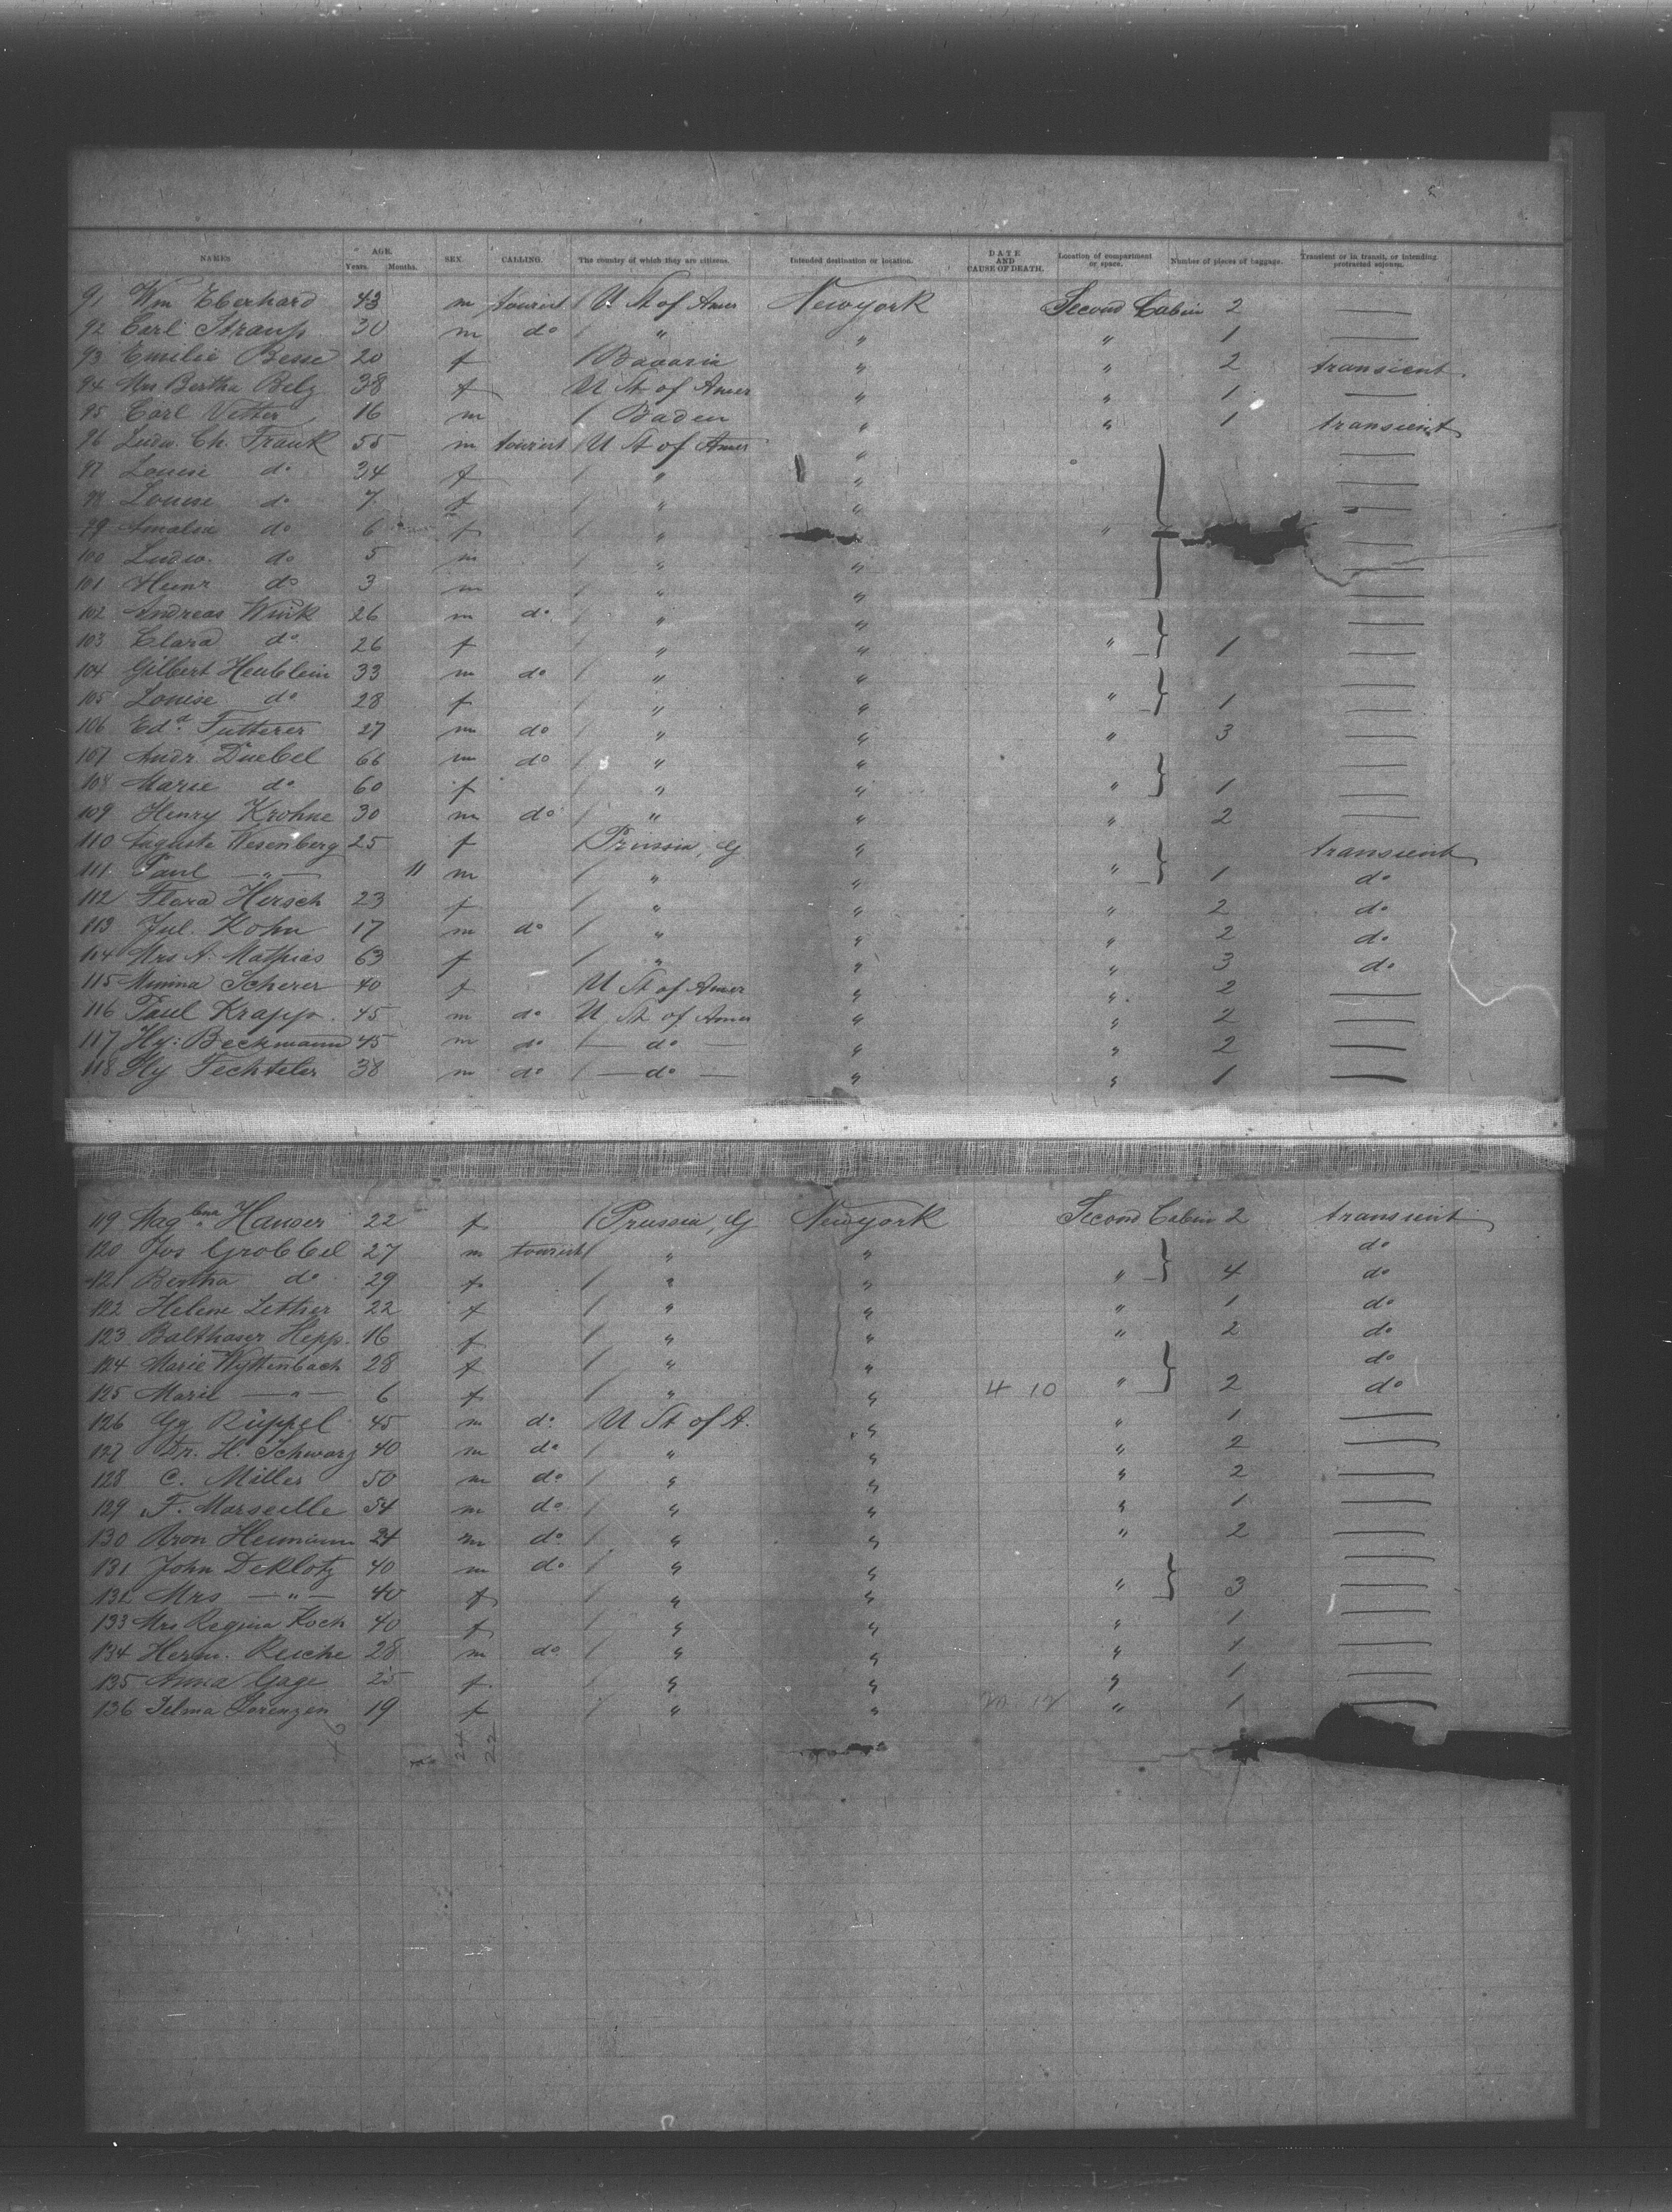 NAMES AGE. Years. Months. SEX. CALLING. The country of which they are citizens. Intended destination or location. DATE AND CAUSE OF DEATH. Location of compartment or space. Number of pieces of baggage. Transient or in transit, or intending protracted sojourn.
91 Wm Eberhard 43 m tourist / U. St of Amer Newyork Second Cabin 2 —
92 Carl 30 m do / " " " 1 —
93 Emilie Besse 20 f / Bavaria " " 2 transient
94 Mrs Bertha Belz 38 f U St of Amer " " 1 —
95 Carl Vetter 16 m / Baden " " 1 transient
96 Ludw. Ch. Frank 55 m tourist / U St of Amer " —
97 Louise do 34 f / " " —
98 Louise do 7 f / " " —
99 Amalia do 6 f / " " " —
100 Ludw. do 5 m / " " —
101 Heinr do 3 m / " " —
102 Andreas Wink 26 m do / " " —
103 Clara do 26 f / " " " 1 —
104 Gilbert Heublein 33 m do / " " —
105 Louise do 28 f / " " " 1 —
106 Edd. Futterer 27 m do / " " " 3 —
107 Andr. Duebel 66 m do / " " —
108 Marie do 60 f / " " " 1 —
109 Henry Krohne 30 m do / " " " 2 —
110 Auguste Wesenberg 25 f / Prussia, Gy " transient
111 Paul — " — 11 m / " " " 1 do
112 Flora Hirsch 23 f / " " " 2 do
113 Jul. Kohn 17 m do / " " " 2 do
114 Mrs A. Mathias 63 f / " " " 3 do
115 Minna Scherer 40 f U St of Amer " " 2 —
116 Paul Krapp. 45 m do U St of Amer " " 2 —
117 Hy: Beckmann 45 m do / — do — " " 2 —
118 Hy Fechteler 38 m do / — do — " " 1 —
119 Maglena Hauser 22 f / Prussia, Gy Newyork Second Cabin 2 transient
120 Jos Grobbel 27 m tourist / " " do
121 Bertha do 29 f / " " " 4 do
122 Helene 22 f / " " " 1 do
123 Balthaser Hepp. 16 f / " " " 2 do
124 Marie Wyttenbach 28 f / " " do
125 Marie — " — 6 f / " " 4 10 " 2 do
126 Gg Rüppel 45 m do U St of A. " " 1 —
127 Dr. H. Schwarz 40 m do / " " " 2 —
128 C. Miller 50 m do / " " " 2 —
129 F. Marseille 54 m do / " " " 1 —
130 Aron Heumann 24 m do / " " " 2 —
131 John Deklotz 40 m do / " " —
132 Mrs — " — 40 f / " " " 3 —
133 Mrs Regina Koch 40 f / " " " 1 —
134 Herm. Reiche 28 m do / " " " 1 —
135 Anna Gage 25 f / " " " 1 —
136 Selma Lorenzen 19 f / " " " 1 —
46 24 22